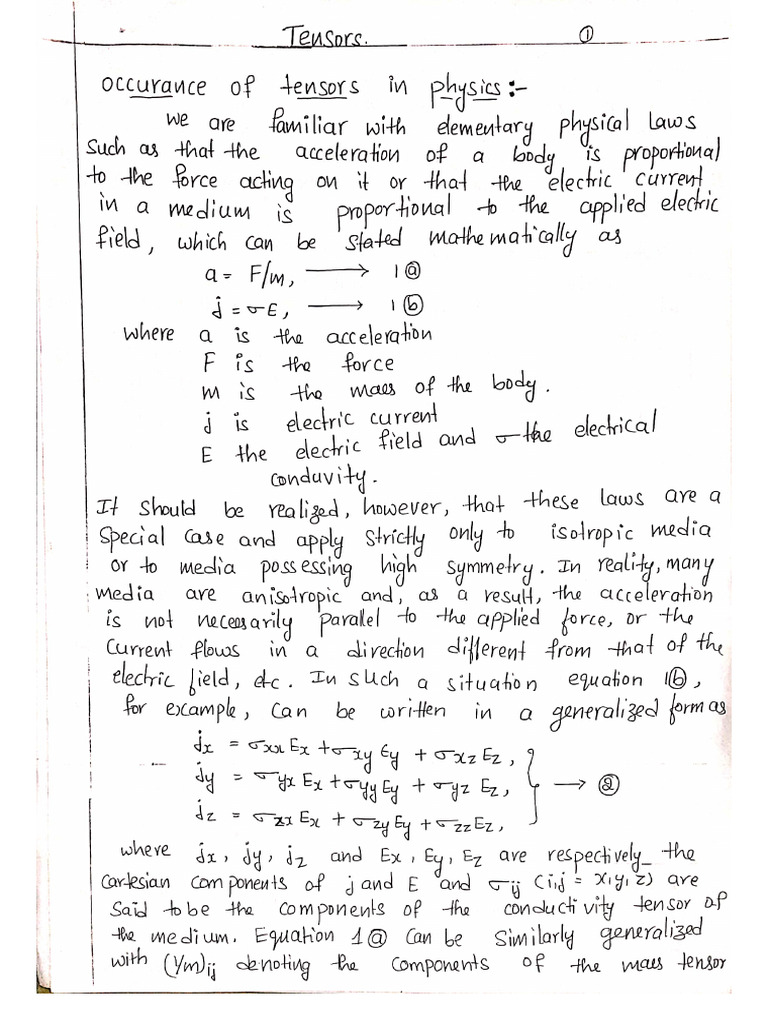 Tensors. ①
occurance of tensors in physics :-
we are familiar with elementary physical laws
Such as that the acceleration of a body is proportional
to the force acting on it or that the electric current
in a medium is proportional to the applied electric
field, which can be stated mathematically as
a = F/m, ⟶ 1ⓐ
j = σE, ⟶ 1ⓑ
where a is the acceleration
F is the force
m is the mass of the body.
j is electric current
E the electric field and σ the electrical
conduvity.
It should be realized, however, that these laws are a
Special case and apply strictly only to isotropic media
or to media possessing high symmetry. In reality, many
media are anisotropic and, as a result, the acceleration
is not necessarily parallel to the applied force, or the
Current flows in a direction different from that of the
electric field, etc. In such a situation equation 1ⓑ,
for example, Can be written in a generalized form as
jx = σxx Ex + σxy Ey + σxz Ez,
jy = σyx Ex + σyy Ey + σyz Ez, } → ②
jz = σzx Ex + σzy Ey + σzz Ez,
where jx, jy, jz and Ex, Ey, Ez are respectively the
Cartesian components of j and E and σij (i,j = x,y,z) are
Said to be the components of the conductivity tensor of
the medium. Equation 1ⓐ Can be Similarly generalized
with (1/m)ij denoting the components of the mass tensor